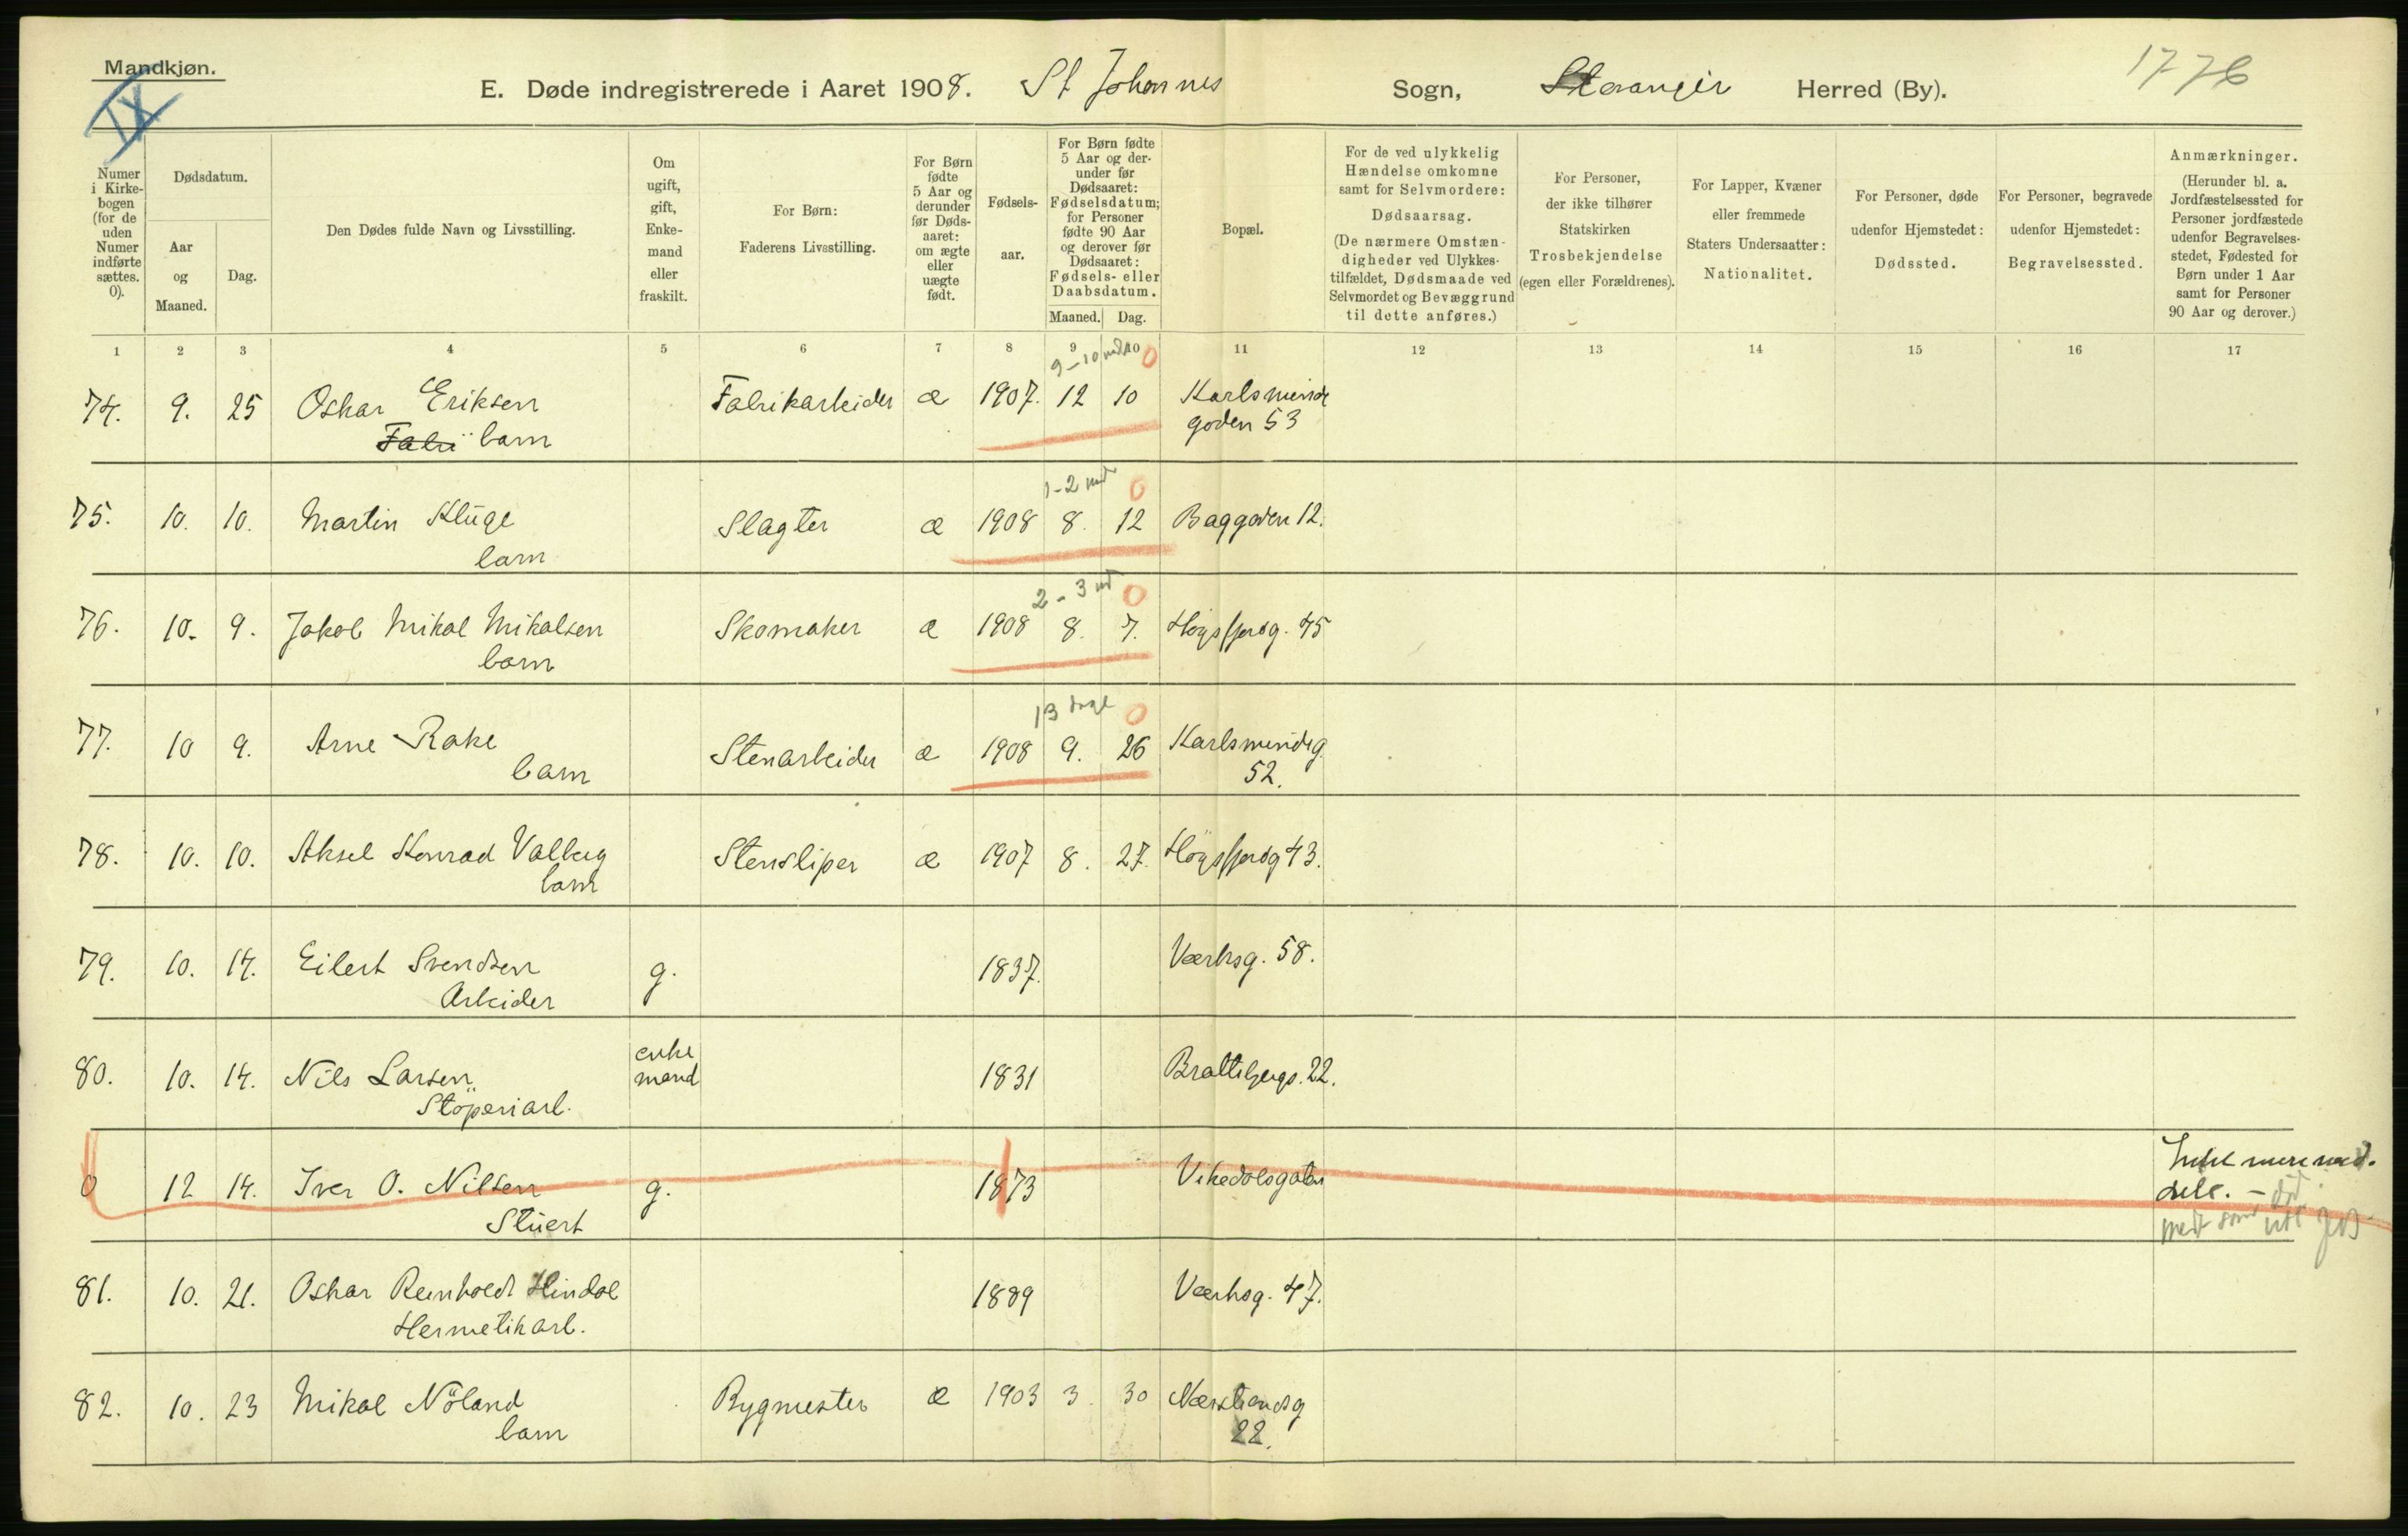 Mandkjøn.
IX
E. Døde indregistrerede i Aaret 1908. St Johannes Sogn, Stavanger Herred (By).
1776
Numer i Kirkebogen (for de uden Numer indførte sættes. 0).
Dødsdatum.
Aar og Maaned.
Dag.
Den Dødes fulde Navn og Livsstilling.
Om ugift, gift, Enkemand eller fraskilt.
For Børn: Faderens Livsstilling.
For Børn fødte 5 Aar og derunder før Dødsaaret: om ægte eller uægte født.
Fødselsaar.
For Børn fødte 5 Aar og derunder før Dødsaaret: Fødselsdatum; for Personer fødte 90 Aar og derover før Dødsaaret: Fødsels- eller Daabsdatum.
Maaned. Dag.
Bopæl.
For de ved ulykkelig Hændelse omkomne samt for Selvmordere: Dødsaarsag. (De nærmere Omstændigheder ved Ulykkestilfældet, Dødsmaade ved Selvmordet og Bevæggrund til dette anføres.)
For Personer, der ikke tilhører Statskirken Trosbekjendelse (egen eller Forældrenes).
For Lapper, Kvæner eller fremmede Staters Undersaatter: Nationalitet.
For Personer, døde udenfor Hjemstedet: Dødssted.
For Personer, begravede udenfor Hjemstedet: Begravelsessted.
Anmærkninger. (Herunder bl. a. Jordfæstelsessted for Personer jordfæstede udenfor Begravelsesstedet, Fødested for Børn under 1 Aar samt for Personer 90 Aar og derover.)
1 2 3 4 5 6 7 8 9 10 11 12 13 14 15 16 17
9-10 md 0
74. 9. 25 Oskar Eriksen Fabrikarbeider æ 1907. 12 10 Karlsminde
Fabri barn goden 53
1-2 md 0
75. 10. 10. Martin Kluge Slagter æ 1908 8. 12 Baggaden 12.
barn
2-3 md 0
76. 10. 9. Jakob Mikal Mikalsen Skomaker æ 1908 8. 7. Høgsfjordg. 45
barn
13 dage 0
77. 10 9. Arne Rake Stenarbeider æ 1908 9. 26 Karlsmindeg
barn 52.
78. 10. 10. Aksel Konrad Valberg Stensliper æ 1907 8. 27. Högsfjordg 43.
barn
79. 10. 14. Eilert Svendsen g. 1837. Værksg. 58.
Arbeider
80. 10. 14. Nils Larsen enke mand 1831 Brattebergs. 22.
Stöperiarb.
0 12 14. Iver O. Nilsen g. 1873 Vikedalsgaten
Stuert
81. 10. 21. Oskar Reinholdt Hindal 1889 Værksg. 47.
Hermetikarb.
82. 10. 23 Mikal Nöland Bygmester æ 1903 3. 30 Nærstrandsg
barn 22.